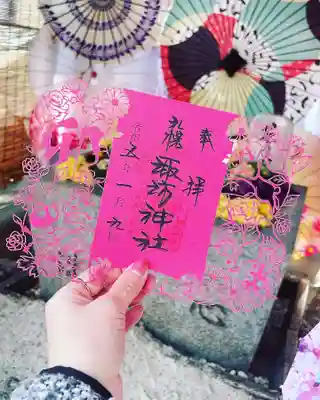 奉拝
札幌
諏訪神社
令和五年一月九日